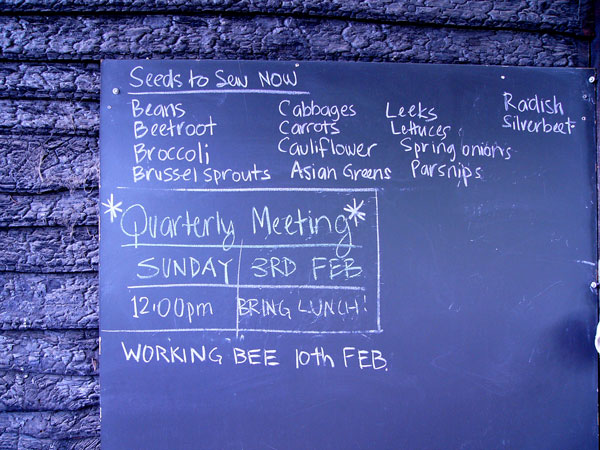 Seeds to Sew NOW
Beans
Beetroot
Broccoli
Brussel sprouts
Cabbages
Carrots
Cauliflower
Asian Greens
Leeks
Lettuces
Spring onions
Parsnips
Radish
Silverbeet
*Quarterly Meeting*
SUNDAY 3RD FEB
12:00pm BRING LUNCH!
WORKING BEE 10th FEB.